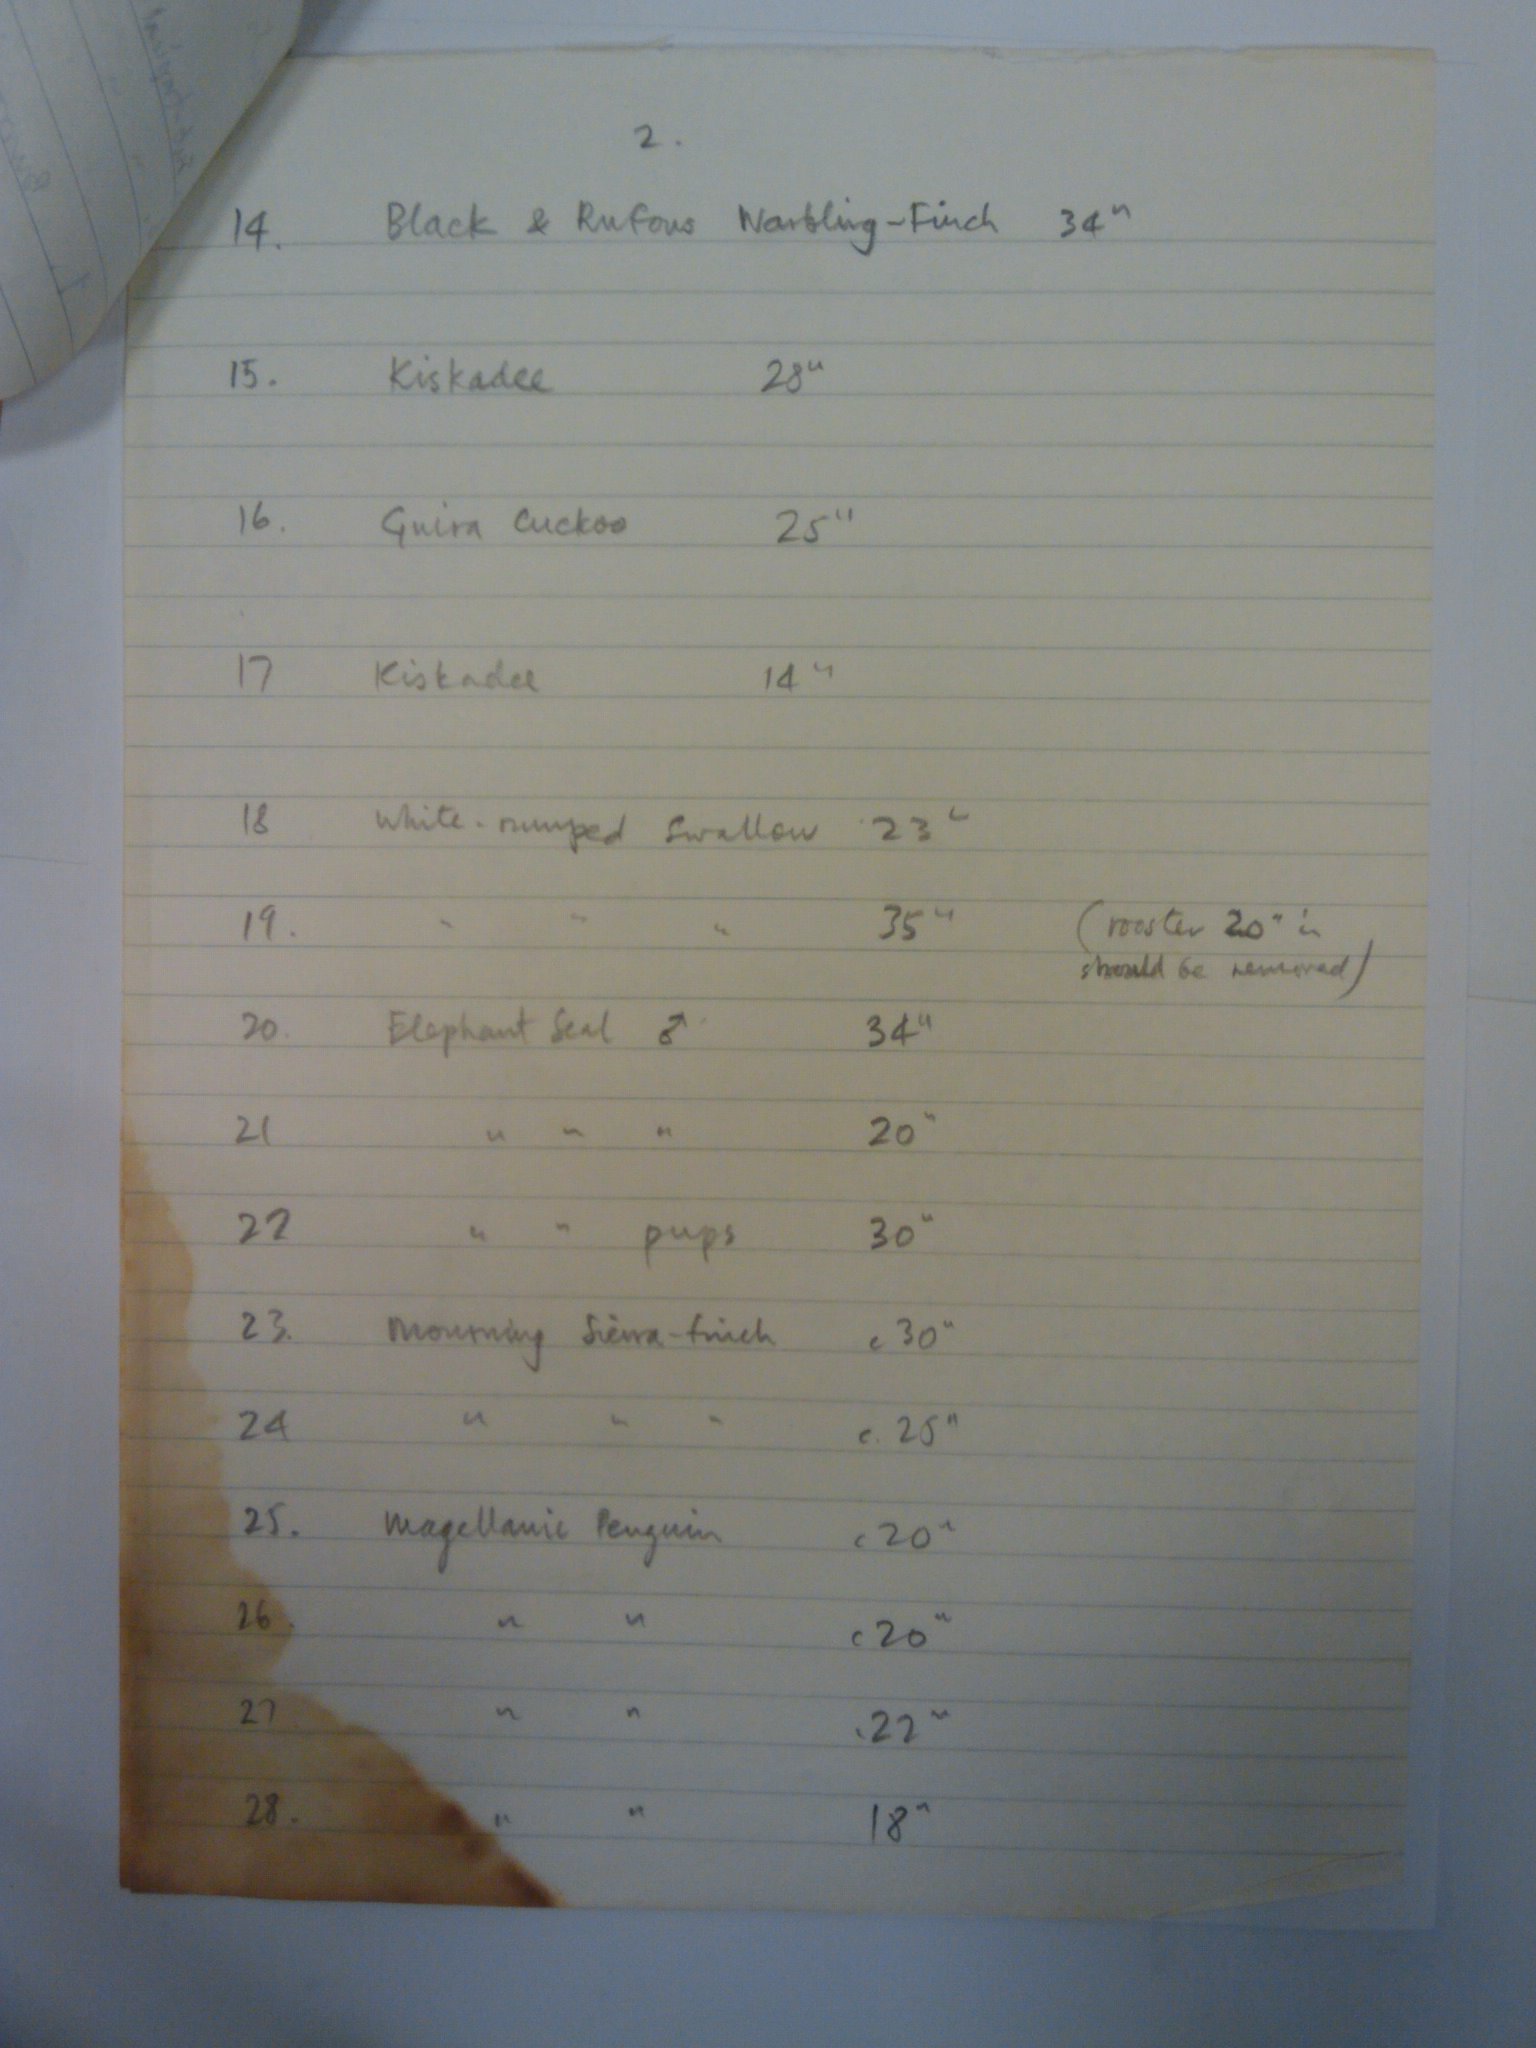 2.
14. Black & Rufous Warbling-Finch 34"
15. Kiskadee 28"
16. Guira Cuckoo 25"
17 Kiskadee 14"
18 White-rumped Swallow 23"
19. " " " 35" (rooster 20" in
should be removed)
20. Elephant Seal ♂ 34"
21 " " " 20"
22 " " pups 30"
23. Mourning Sierra-finch c30"
24 " " " c. 25"
25. Magellanic Penguin c20"
26. " " c20"
27 " " c22"
28. " " 18"